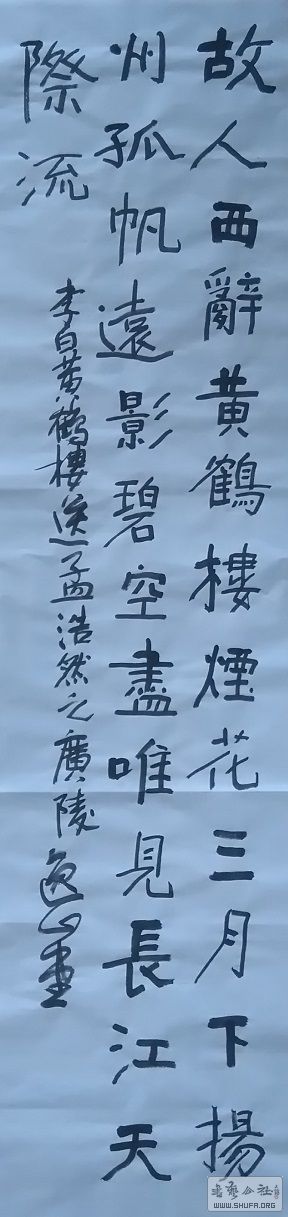 故人西辭黄鶴樓煙花三月下揚
州孤帆遠影碧空盡唯見長江天
際流
李白黄鶴樓送孟浩然之廣陵 逸山書
書藝公社
WWW.SHUFA.ORG